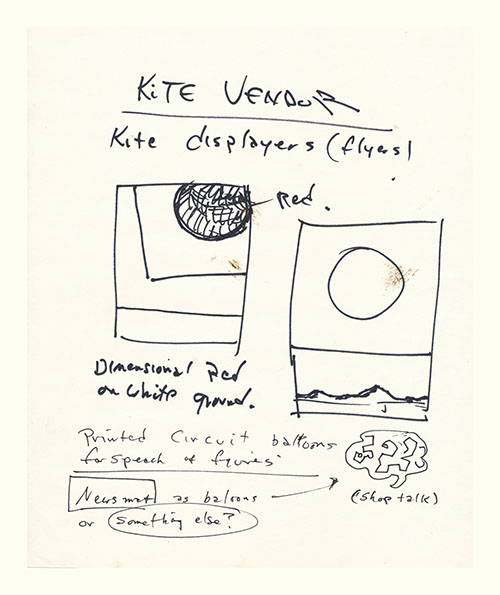 KITE VENDOR
Kite displayers (flyers)
Red.
Dimensional Red
on white ground.
Printed Circuit balloons
for speach of figures
Newsmat as baloons
(shop talk)
or something else?